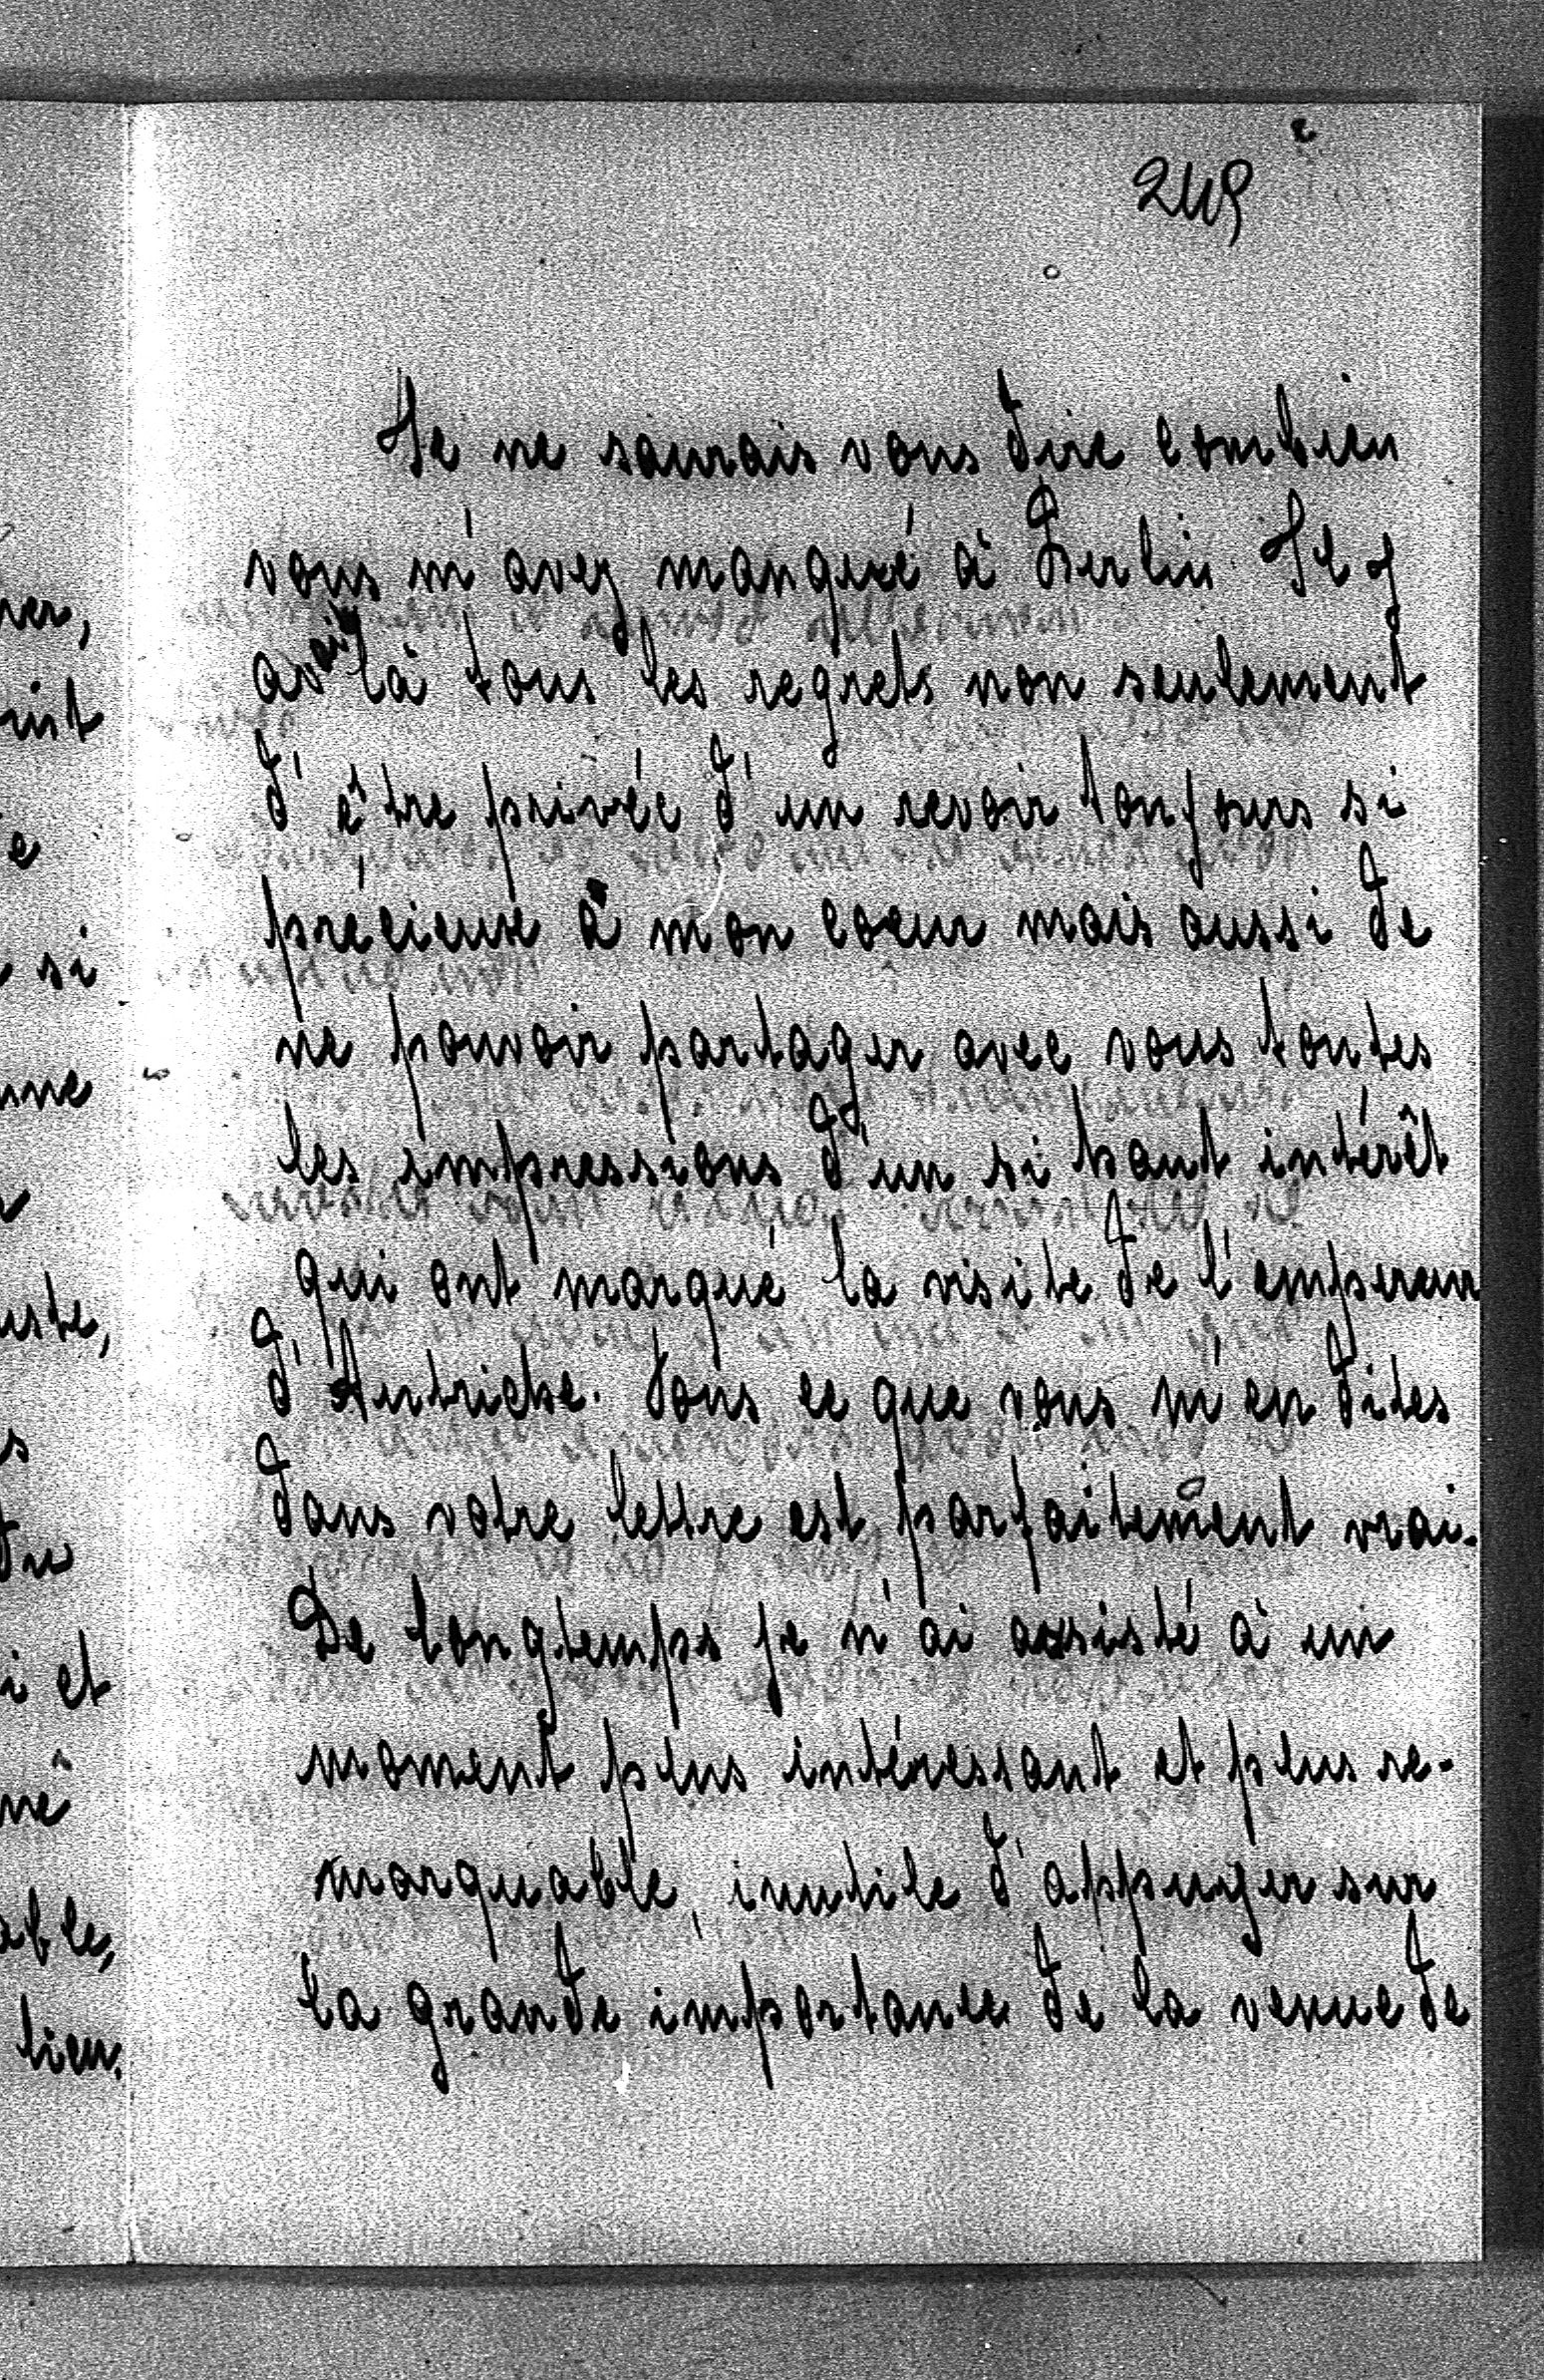 249
Je ne saurais vous dire combien
vous m'avez manqué à Berlin. Il y
avait là tous les regrets non seulement
d'être privée d'un revoir toujours si
précieuse à mon coeur mais aussi de
ne pouvoir partager avec vous toutes
les impressions d'un si haut intérêt
qui ont marqué la visite de l'empereur
d'Autriche. Tous ce que vous m'en dites
dans votre lettre est parfaitement vrai.
De longtemps je n'ai assisté à un
moment plus intéressant et plus re-
marquable, inutile d'appuyer sur
la grande importance de la venue de